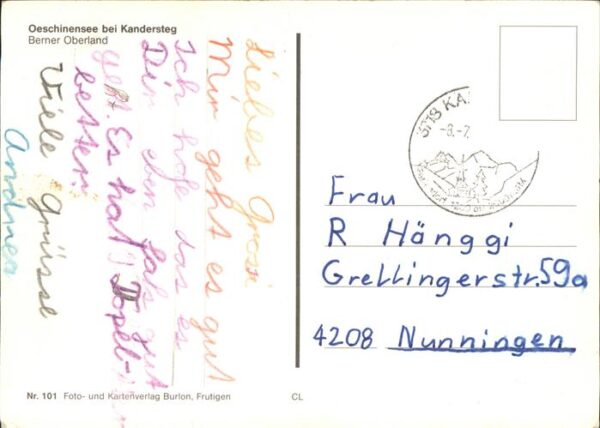 Oeschinensee bei Kandersteg
Berner Oberland
Liebes Grosi
Mir geht es gut
Ich hofe das es
Dir eben fals gut
geht. Es hat Dopel-
betten
Viele Grüsse
Andrea
3718 KA
-8.-7.
Frau
R Hänggi
Grellingerstr. 59a
4208 Nunningen
Nr. 101 Foto- und Kartenverlag Burlon, Frutigen
CL